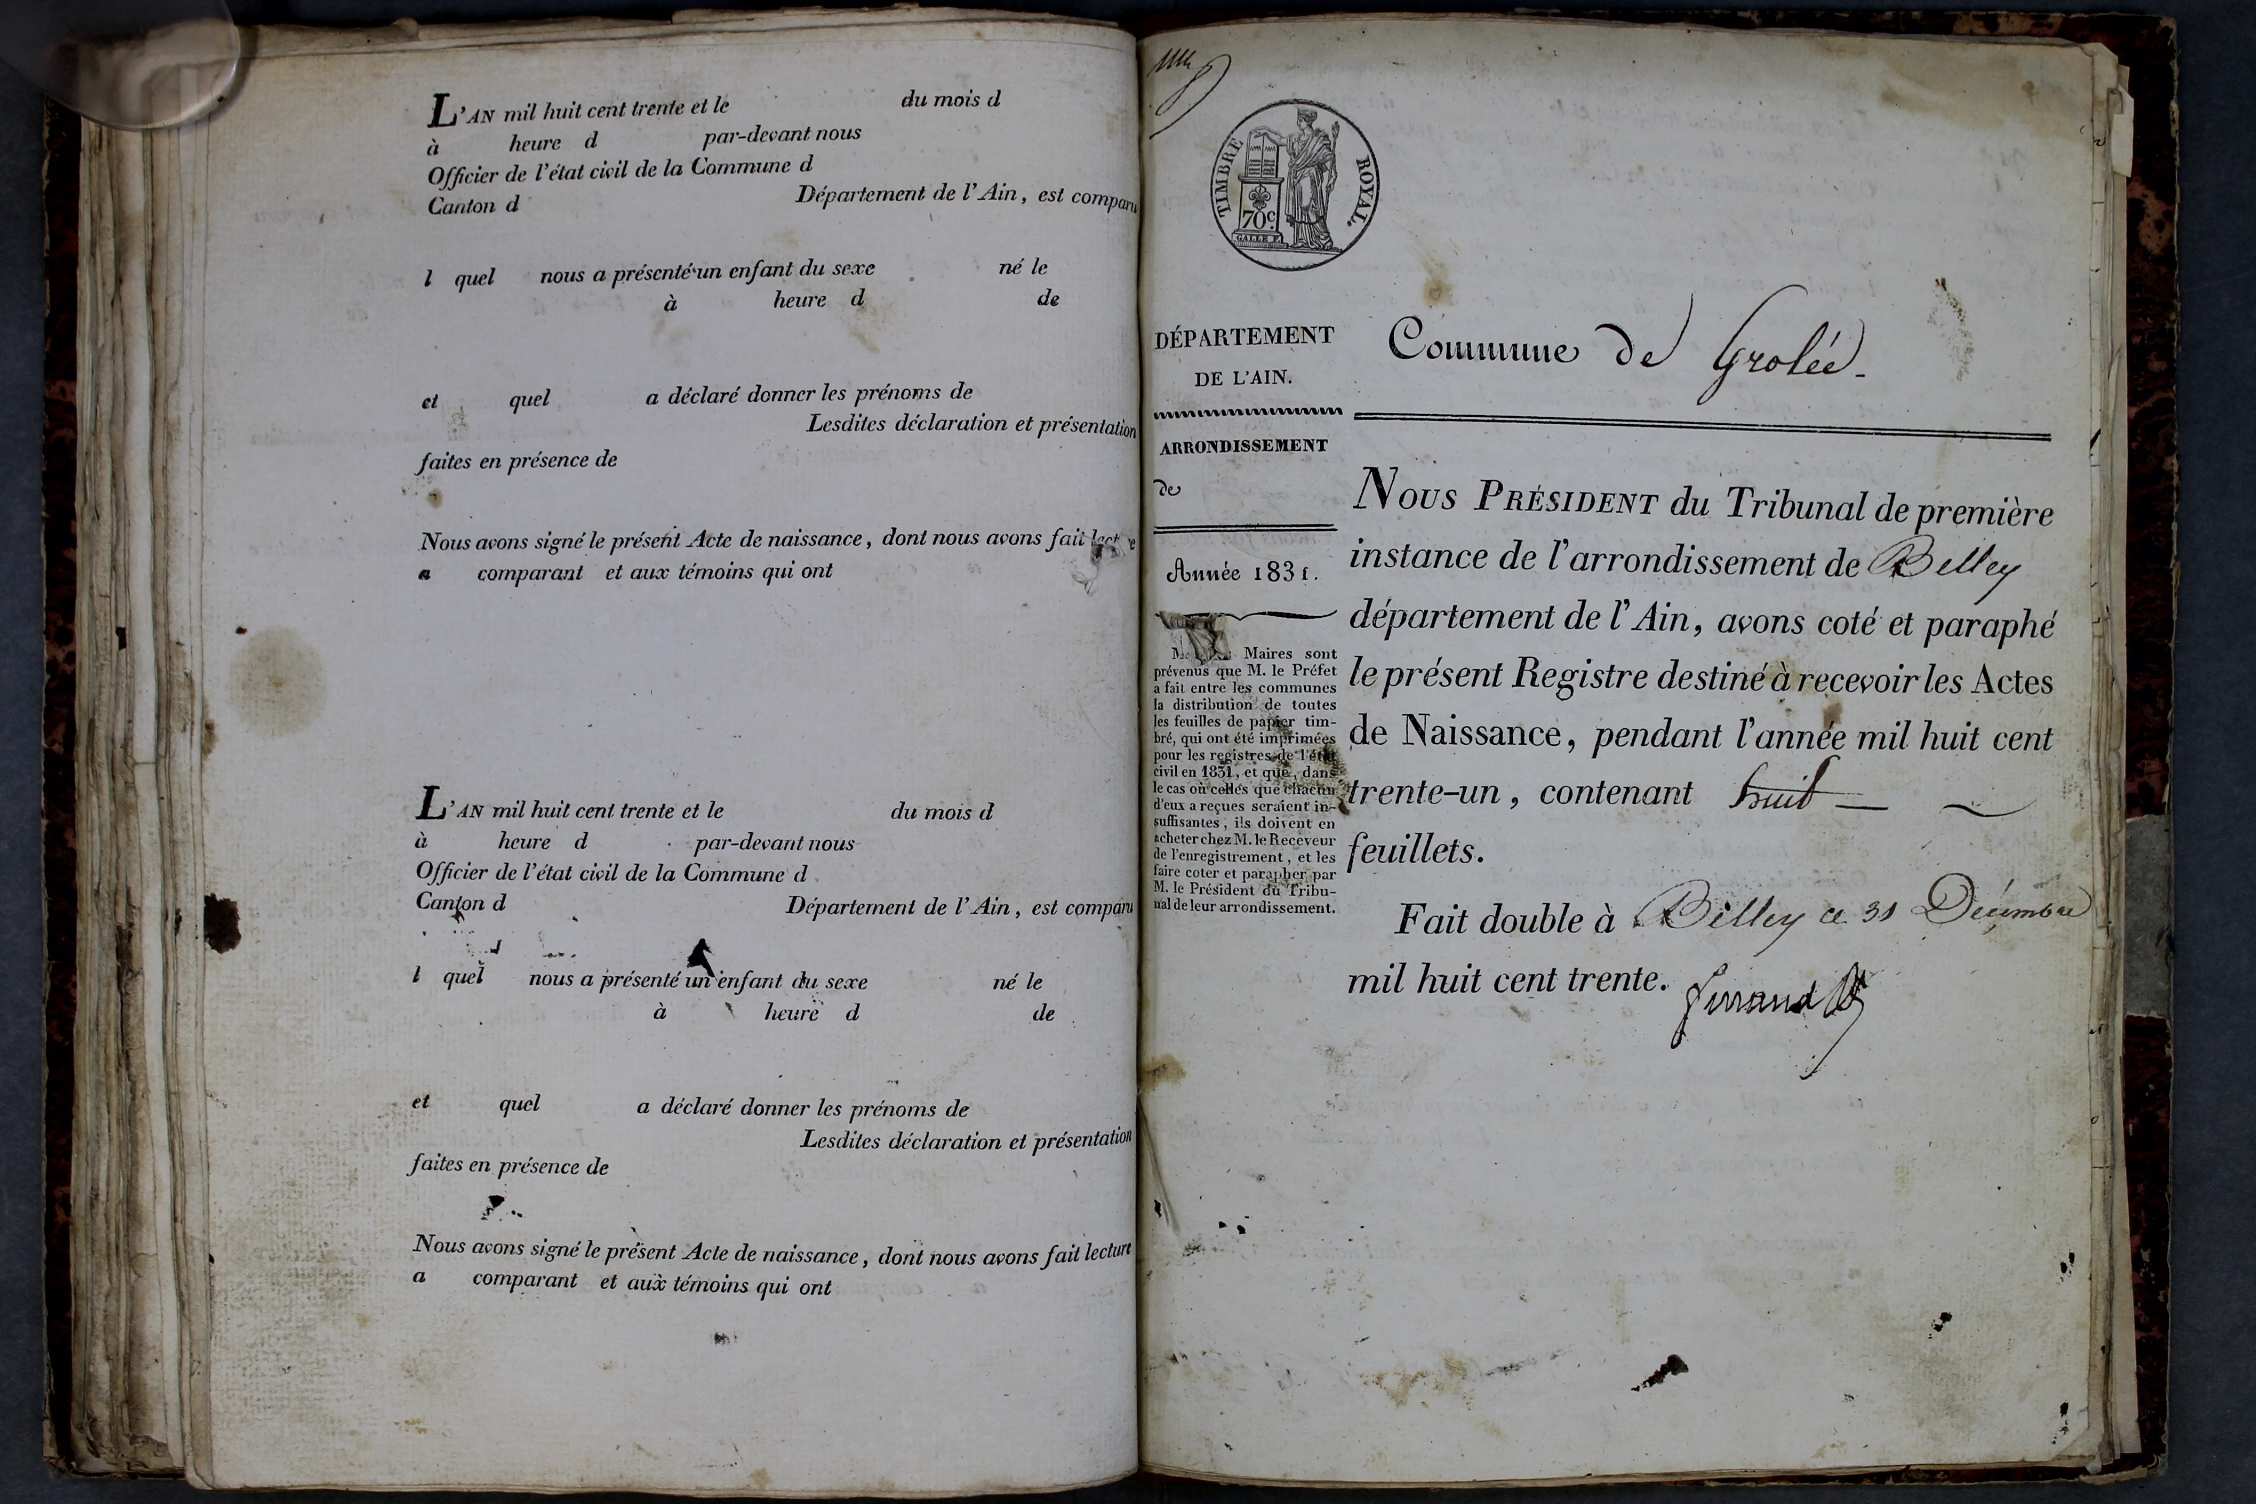 L'AN mil huit cent trente et le du mois d
à heure d par-devant nous
Officier de l'état civil de la Commune d
Canton d Département de l'Ain, est comparu
l quel nous a présenté un enfant du sexe né le
à heure d de
et quel a déclaré donner les prénoms de
Lesdites déclaration et présentation
faites en présence de
Nous avons signé le présent Acte de naissance, dont nous avons fait lecture
a comparant et aux témoins qui ont
L'AN mil huit cent trente et le du mois d
à heure d par-devant nous
Officier de l'état civil de la Commune d
Canton d Département de l'Ain, est comparu
l quel nous a présenté un enfant du sexe né le
à heure d de
et quel a déclaré donner les prénoms de
Lesdites déclaration et présentation
faites en présence de
Nous avons signé le présent Acte de naissance, dont nous avons fait lecture
a comparant et aux témoins qui ont
TIMBRE ROYAL.
70c.
DÉPARTEMENT
DE L'AIN.
ARRONDISSEMENT
de
Année 1831.
Maires sont
prévenus que M. le Préfet
a fait entre les communes
la distribution de toutes
les feuilles de papier tim-
bré, qui ont été imprimées
pour les registres de l'état
civil en 1831, et que, dans
le cas où celles que chacun
d'eux a reçues seraient in-
suffisantes, ils doivent en
acheter chez M. le Receveur
de l'enregistrement, et les
faire coter et parapher par
M. le Président du Tribu-
nal de leur arrondissement.
Commune de Grolée
NOUS PRÉSIDENT du Tribunal de première
instance de l'arrondissement de Belley
département de l'Ain, avons coté et paraphé
le présent Registre destiné à recevoir les Actes
de Naissance, pendant l'année mil huit cent
trente-un, contenant huit
feuillets.
Fait double à Belley ce 31 Décembre
mil huit cent trente.